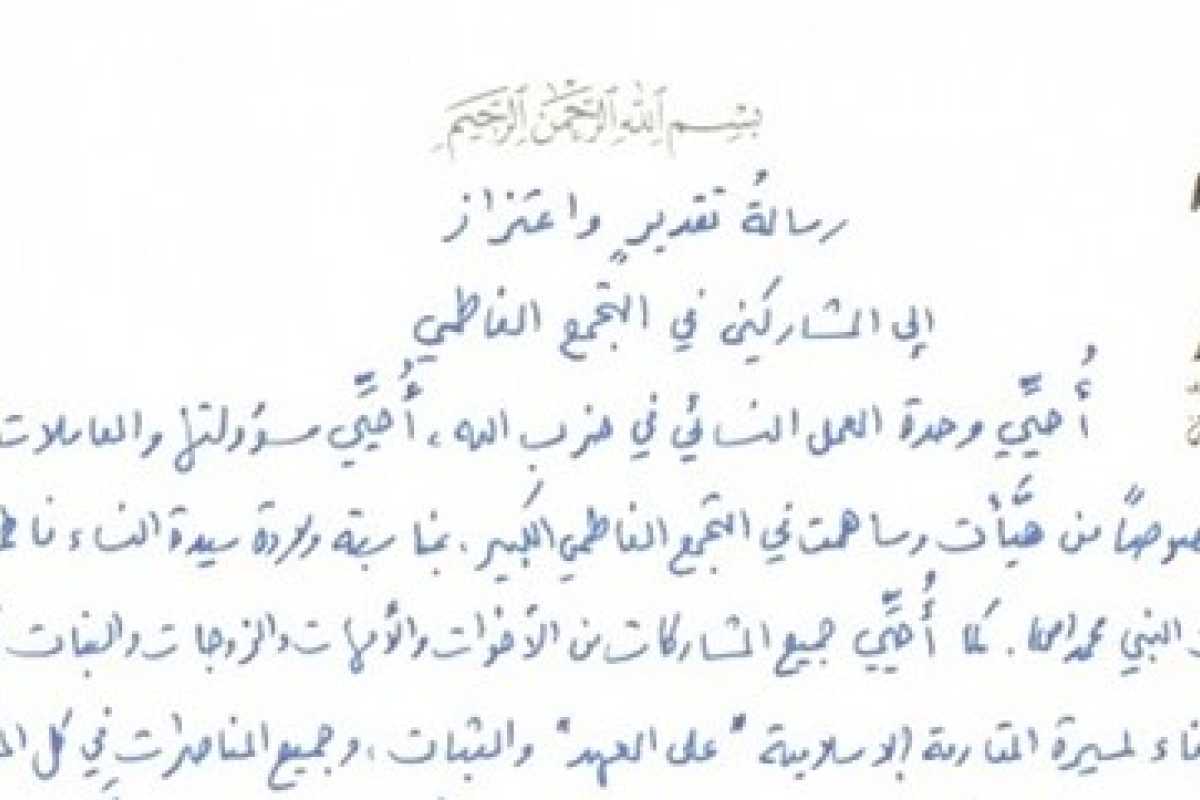 بِسْمِ اللهِ الرَّحْمَنِ الرَّحِيمِ
رسالةُ تقديرٍ واعتزاز
إلى المشاركين في التجمع الفاطمي
أُحيِّي وحدة العمل النسائي في حزب الله، أُحيِّي مسؤولتها والعاملات
من هيَّأت وساهمت في التجمع الفاطمي الكبير، بمناسبة ولادة سيدة النساء
النبي محمد(ص). كما أُحيِّي جميع المشاركات من الأخوات والأمهات والزوجات والبنات
لمسيرة المقاومة الإسلامية "على العهد" والثبات، وجميع المناصرات في كل